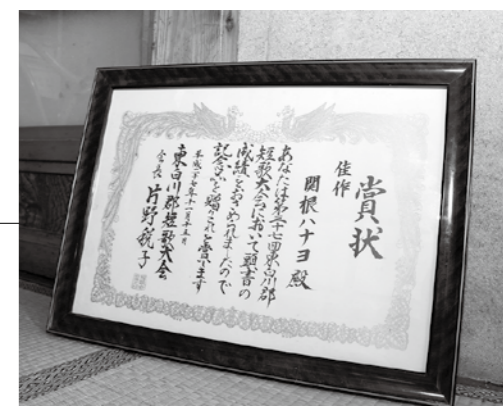 賞状
佳作
関根ハナヨ 殿
あなたは第三十七回東白川郡
短歌大会において頭書の
成績をおさめられましたので
記念品を贈りこれを賞します
平成二十七年十一月十五日
東白川郡短歌大会
会長 片野
子